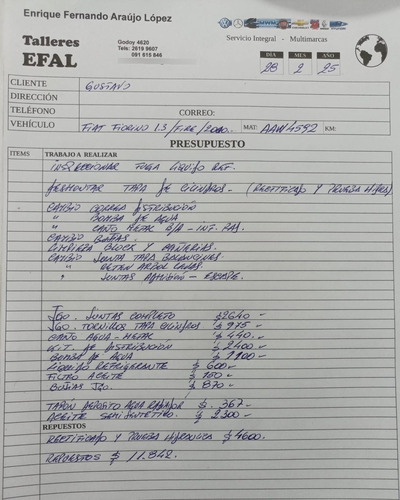 Enrique Fernando Araújo López
Talleres
EFAL
Godoy 4620
Tels: 2619 9607
091 615 846
Servicio Integral - Multimarcas
DÍA MES AÑO
28 2 25
CLIENTE GUSTAVO
DIRECCIÓN
TELÉFONO CORREO:
VEHÍCULO FIAT FIORINO 1.3/FIRE/2000. MAT: AAW4592 KM:
PRESUPUESTO
ITEMS TRABAJO A REALIZAR
INSPECCIONAR FUGA LIQUIDO REF.
DESMONTAR TAPA DE CILINDROS - (RECTIFICADO Y PRUEBA
CAMBIO CORREA DISTRIBUCIÓN
" BOMBA DE AGUA
" CAÑO METAL
CAMBIO BUJIAS.
LIMPIEZA BLOCK Y CAÑERIAS.
CAMBIO JUNTA TAPA BALANCINES.
" RETEN ARBOL LEVAS.
" JUNTAS ADMISION - ESCAPE.
JGO. JUNTAS COMPLETO $2640-
JGO. TORNILLOS TAPA CILINDROS $975-
CAÑO AGUA - METAL $440-
KIT. DE DISTRIBUCIÓN $2400-
BOMBA DE AGUA $1100-
LIQUIDO REFRIGERANTE $600-
FILTRO ACEITE $
BUJIAS JGO. $870-
TAPÓN DEPOSITO AGUA RADIADOR $. 367-
ACEITE SEMISINTETICO. $2300-
REPUESTOS
RECTIFICADO Y PRUEBA HIDRAULICA $4600.
REPUESTOS $ 11.842.